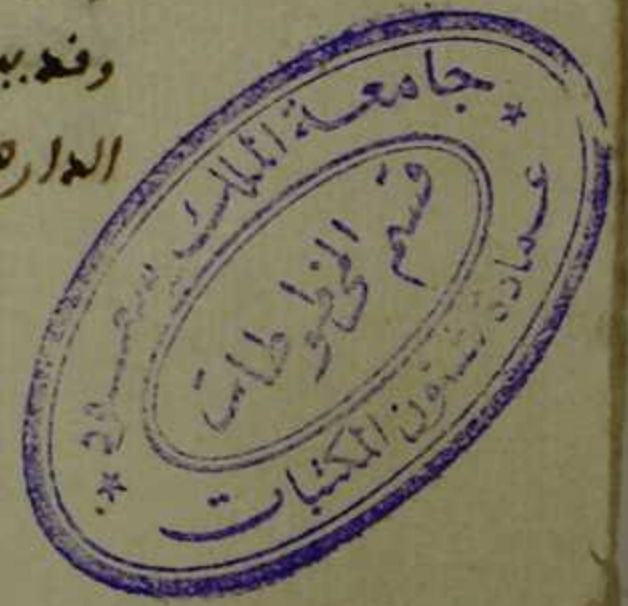 وقد بي
الدارة
جامعة الملك سعود
قسم المخطوطات
عمادة شؤون المكتبات